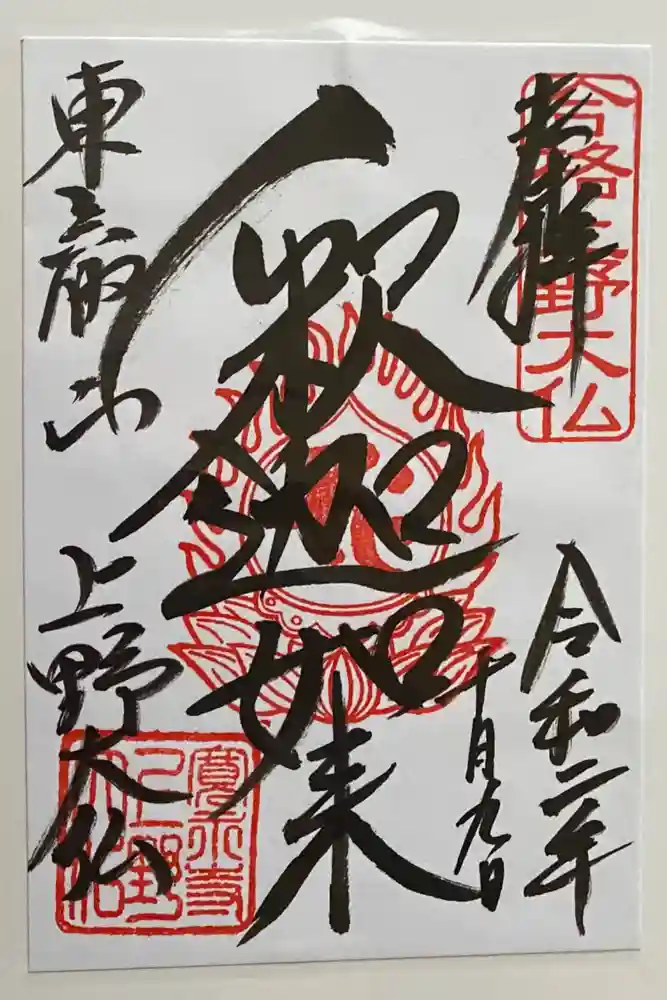 奉拝
合格上野大仏
令和二年
十月九日
釈迦如来
東叡山
上野大仏
寛永寺
上野
大佛